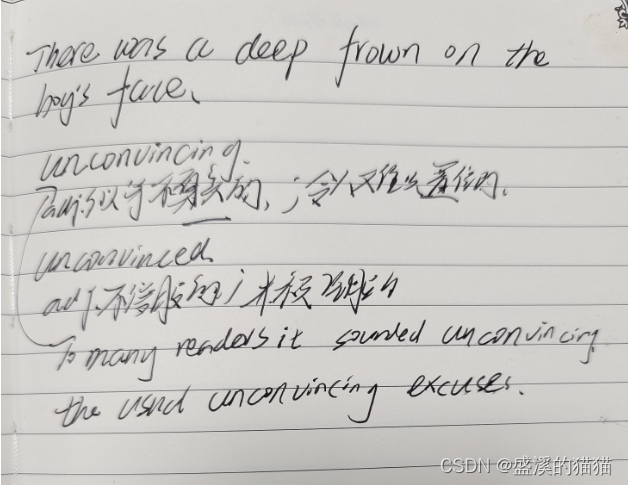 There was a deep frown on the
boy's face.
unconvincing.
adj.似乎不真实的，；令人难以置信的.
unconvinced.
adj.不信服的；未被说服的
To many readers it sounded unconvincing
the usual unconvincing excuses.
CSDN @盛溪的猫猫